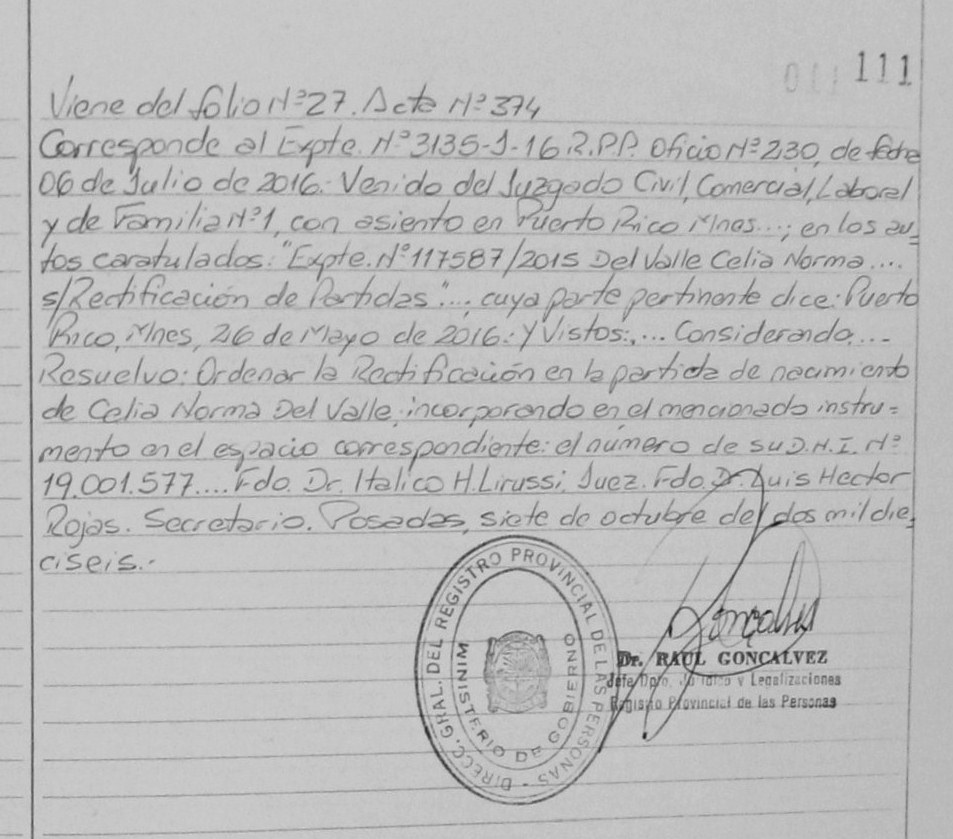 011 111
Viene del folio Nº 27. Acta Nº 374
Corresponde al Expte. Nº 3135-J-16 R.P.P. Oficio Nº 230, de fecha
06 de Julio de 2016. Venido del Juzgado Civil, Comercial, Laboral
y de Familia Nº 1, con asiento en Puerto Rico Mnes...; en los au=
tos caratulados: "Expte. Nº 117587/2015 Del Valle Celia Norma....
s/Rectificación de Partidas"..., cuya parte pertinente dice: Puerto
Rico, Mnes, 26 de Mayo de 2016: Y Vistos:,... Considerando,...
Resuelvo: Ordenar la Rectificación en la partida de nacimiento
de Celia Norma Del Valle, incorporando en el mencionado instru=
mento en el espacio correspondiente: el número de su D.N.I. Nº
19.001.577.... Fdo. Dr. Italico H. Lirussi. Juez. Fdo. Dr. Luis Hector
Rojas. Secretario. Posadas, siete de octubre del dos mil die=
ciseis.-
DIRECC. GRAL. DEL REGISTRO PROVINCIAL DE LAS PERSONAS -
MINISTERIO DE GOBIERNO
Gonçalves
Dr. RAUL GONCALVEZ
Jefe Dpto. Jurídico y Legalizaciones
Registro Provincial de las Personas